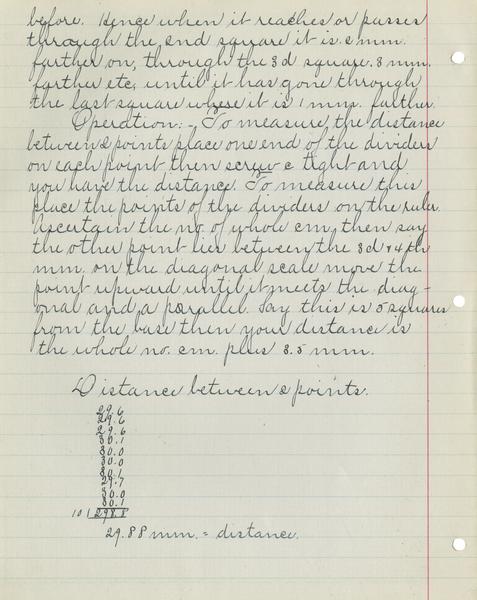 before. Hence when it reaches or passes
through the 2nd square it is .2 mm.
farther on, through the 3d square .3 mm.
farther etc, until it has gone through
the last square where it is 1 mm. farther.
Operation:- To measure the distance
between 2 points place one end of the dividers
on each point then screw c tight and
you have the distance. To measure this
place the points of the dividers on the ruler.
Ascertain the no of whole cm, then say
the other point lies between the 3d & 4th
mm. on the diagonal scale move the
point upward until it meets the diag-
onal and a parallel. Say this is 5 squares
from the base then your distance is
the whole no. cm. plus 3.5 mm.
Distance between 2 points.
29.6
29.6
29.6
30.1
30.0
30.0
30.1
29.7
30.0
30.1
10)298.8
29.88 mm. = distance.